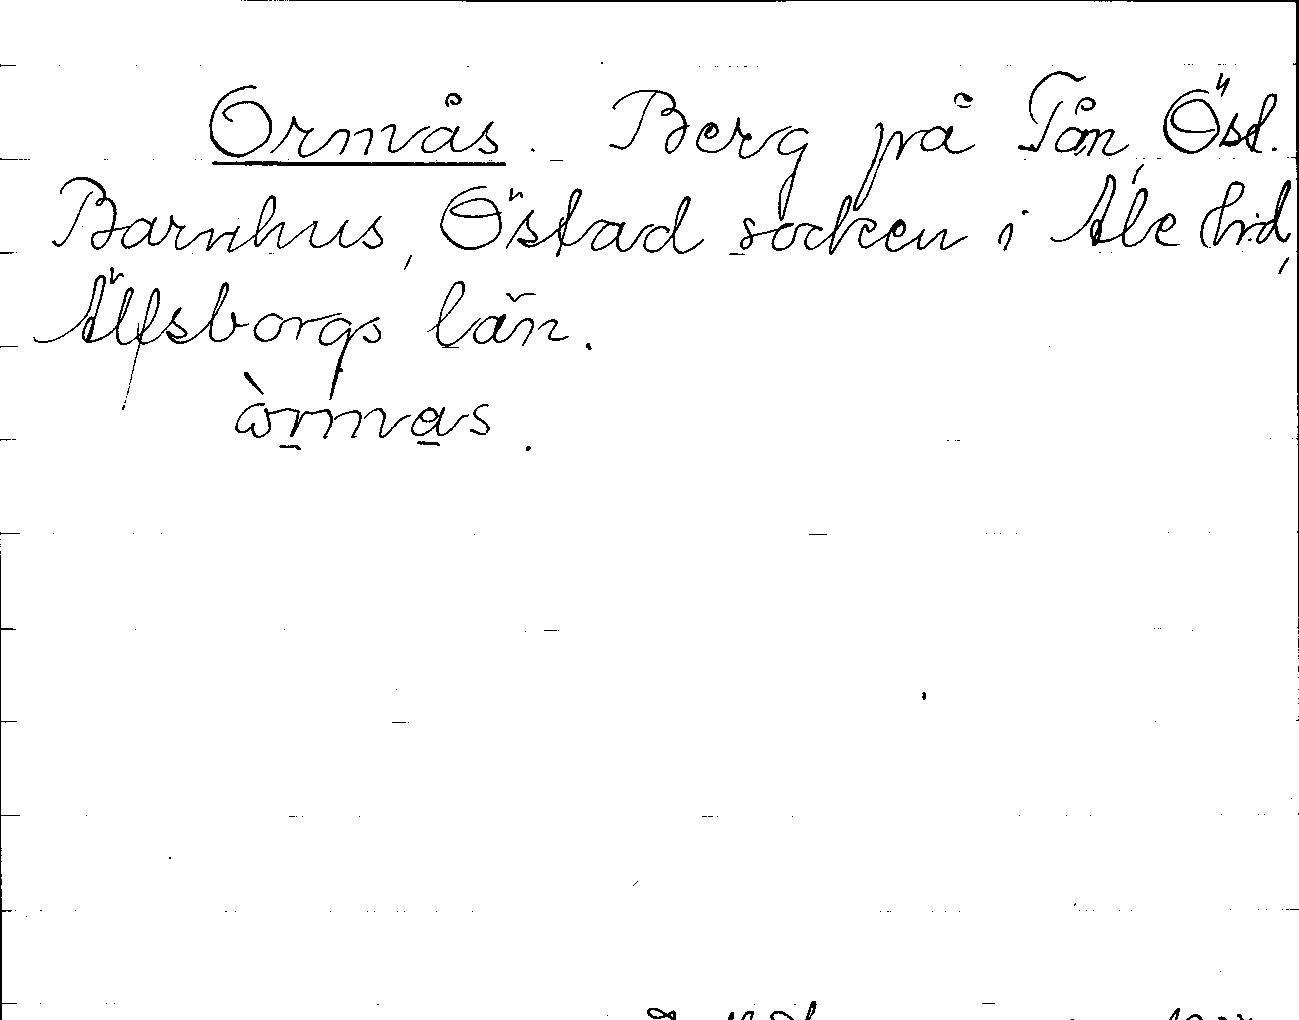 Ormås. Berg på Tån, Öst.
Barnhus, Östad socken i Ale hrd,
Älfsborgs län.
òrmas.